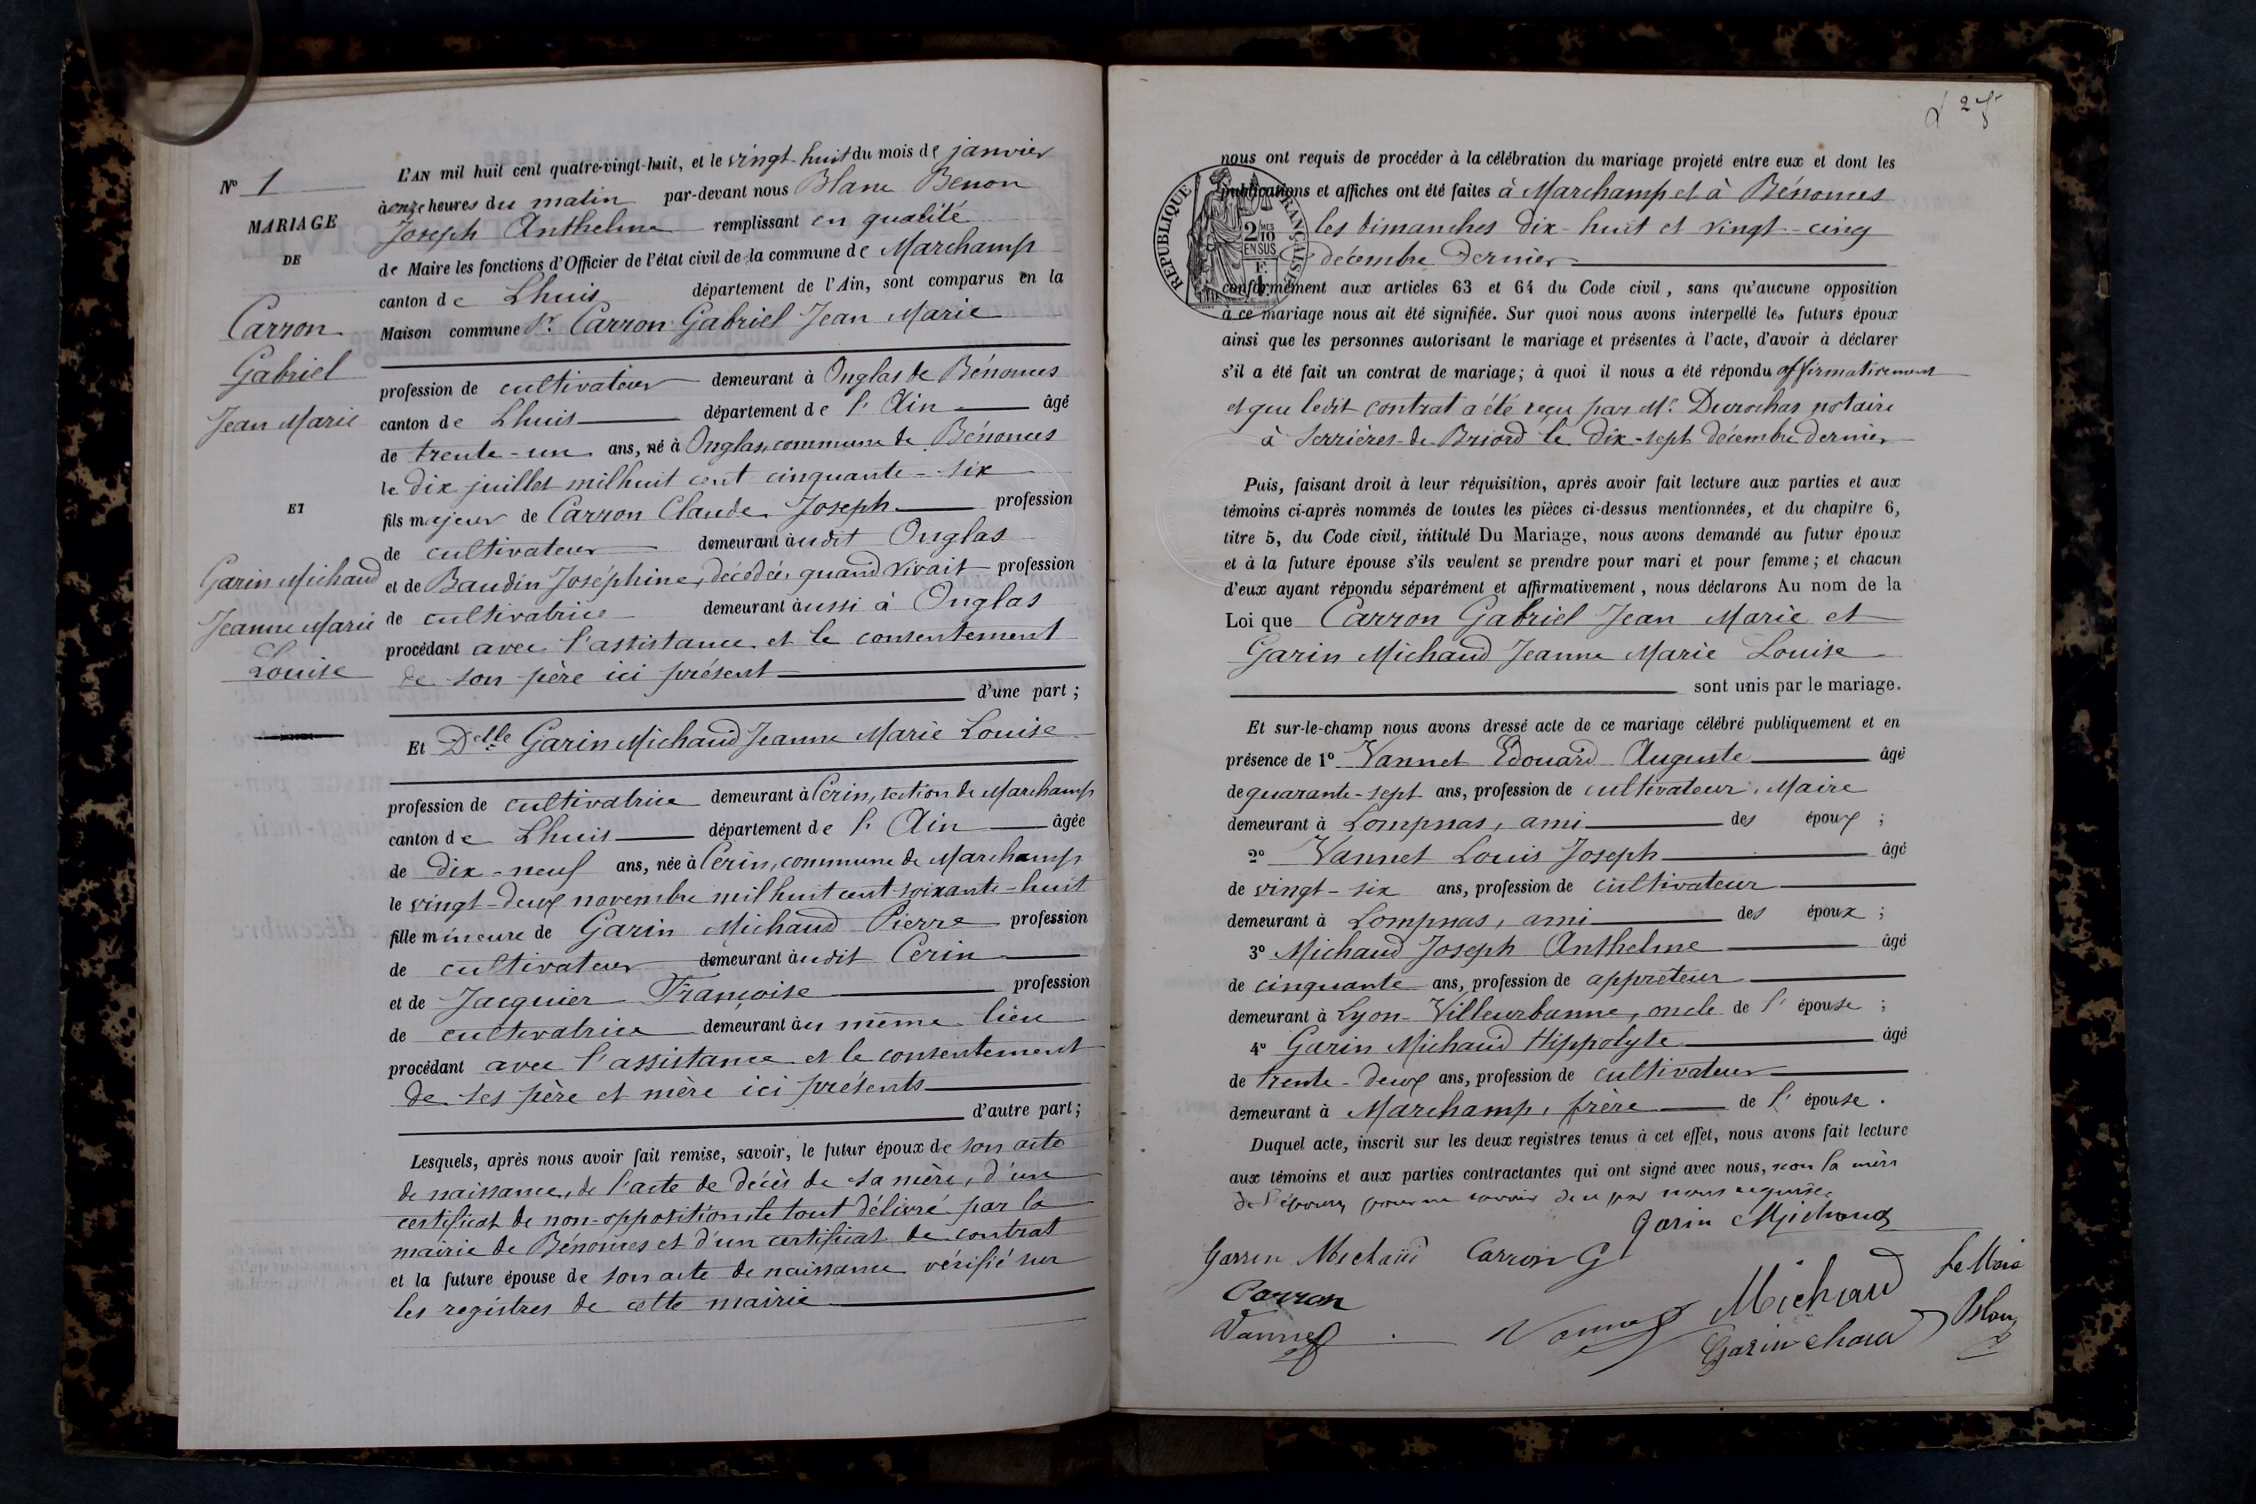 N° 1
MARIAGE
DE
Carron
Gabriel
Jean Marie
ET
Garin Michaud
Jeanne Marie
Louise
L'AN mil huit cent quatre-vingt-huit, et le vingt-huit du mois de janvier
à onze heures du matin par-devant nous Blanc Benon
Joseph Anthelme remplissant en qualité
de Maire les fonctions d'Officier de l'état civil de la commune de Marchamp
canton de Lhuis département de l'Ain, sont comparus en la
Maison commune Sr. Carron Gabriel Jean Marie
profession de cultivateur demeurant à Onglas de Bénonces
canton de Lhuis département de l'Ain âgé
de trente-un ans, né à Onglas, commune de Bénonces
le dix juillet mil huit cent cinquante-six
fils majeur de Carron Claude Joseph profession
de cultivateur demeurant audit Onglas
et de Baudin Joséphine, décédée, quand vivait profession
de cultivatrice demeurant aussi à Onglas
procédant avec l'assistance et le consentement
de son père ici présent
d'une part ;
Et Delle Garin Michaud Jeanne Marie Louise
profession de cultivatrice demeurant à Cerin, section de Marchamp
canton de Lhuis département de l'Ain âgée
de dix-neuf ans, née à Cerin, commune de Marchamp
le vingt-deux novembre mil huit cent soixante-huit
fille mineure de Garin Michaud Pierre profession
de cultivateur demeurant audit Cerin
et de Jacquier Françoise profession
de cultivatrice demeurant au même lieu
procédant avec l'assistance et le consentement
de ses père et mère ici présents
d'autre part ;
Lesquels, après nous avoir fait remise, savoir, le futur époux de son acte
de naissance, de l'acte de décès de sa mère, d'un
certificat de non-opposition le tout délivré par la
mairie de Bénonces et d'un certificat de contrat
et la future épouse de son acte de naissance vérifié sur
les registres de cette mairie
2
nous ont requis de procéder à la célébration du mariage projeté entre eux et dont les
publications et affiches ont été faites à Marchamp et à Bénonces
les dimanches dix-huit et vingt-cinq
décembre dernier
RÉPUBLIQUE FRANÇAISE
2 MES
10
EN SUS
conformément aux articles 63 et 64 du Code civil, sans qu'aucune opposition
à ce mariage nous ait été signifiée. Sur quoi nous avons interpellé les futurs époux
ainsi que les personnes autorisant le mariage et présentes à l'acte, d'avoir à déclarer
s'il a été fait un contrat de mariage; à quoi il nous a été répondu affirmativement
et que ledit contrat a été reçu par Me. Durochas notaire
à Serrières-de-Briord le dix-sept décembre dernier
Puis, faisant droit à leur réquisition, après avoir fait lecture aux parties et aux
témoins ci-après nommés de toutes les pièces ci-dessus mentionnées, et du chapitre 6,
titre 5, du Code civil, intitulé Du Mariage, nous avons demandé au futur époux
et à la future épouse s'ils veulent se prendre pour mari et pour femme; et chacun
d'eux ayant répondu séparément et affirmativement, nous déclarons Au nom de la
Loi que Carron Gabriel Jean Marie et
Garin Michaud Jeanne Marie Louise
sont unis par le mariage.
Et sur-le-champ nous avons dressé acte de ce mariage célébré publiquement et en
présence de 1° Vannet Edouard Auguste âgé
de quarante-sept ans, profession de cultivateur, Maire
demeurant à Lompnas, ami des époux ;
2° Vannet Louis Joseph âgé
de vingt-six ans, profession de cultivateur
demeurant à Lompnas, ami des époux ;
3° Michaud Joseph Anthelme âgé
de cinquante ans, profession de appreteur
demeurant à Lyon-Villeurbanne, oncle de l'épouse ;
4° Garin Michaud Hippolyte âgé
de trente-deux ans, profession de cultivateur
demeurant à Marchamp, frère de l'épouse.
Duquel acte, inscrit sur les deux registres tenus à cet effet, nous avons fait lecture
aux témoins et aux parties contractantes qui ont signé avec nous, non la mère
de l'épouse pour ne savoir de ce par nous requise.
Garin Michaud
Garin Michaud Carron G
Carron Michaud Le Maire
Vannet Vannet Blanc